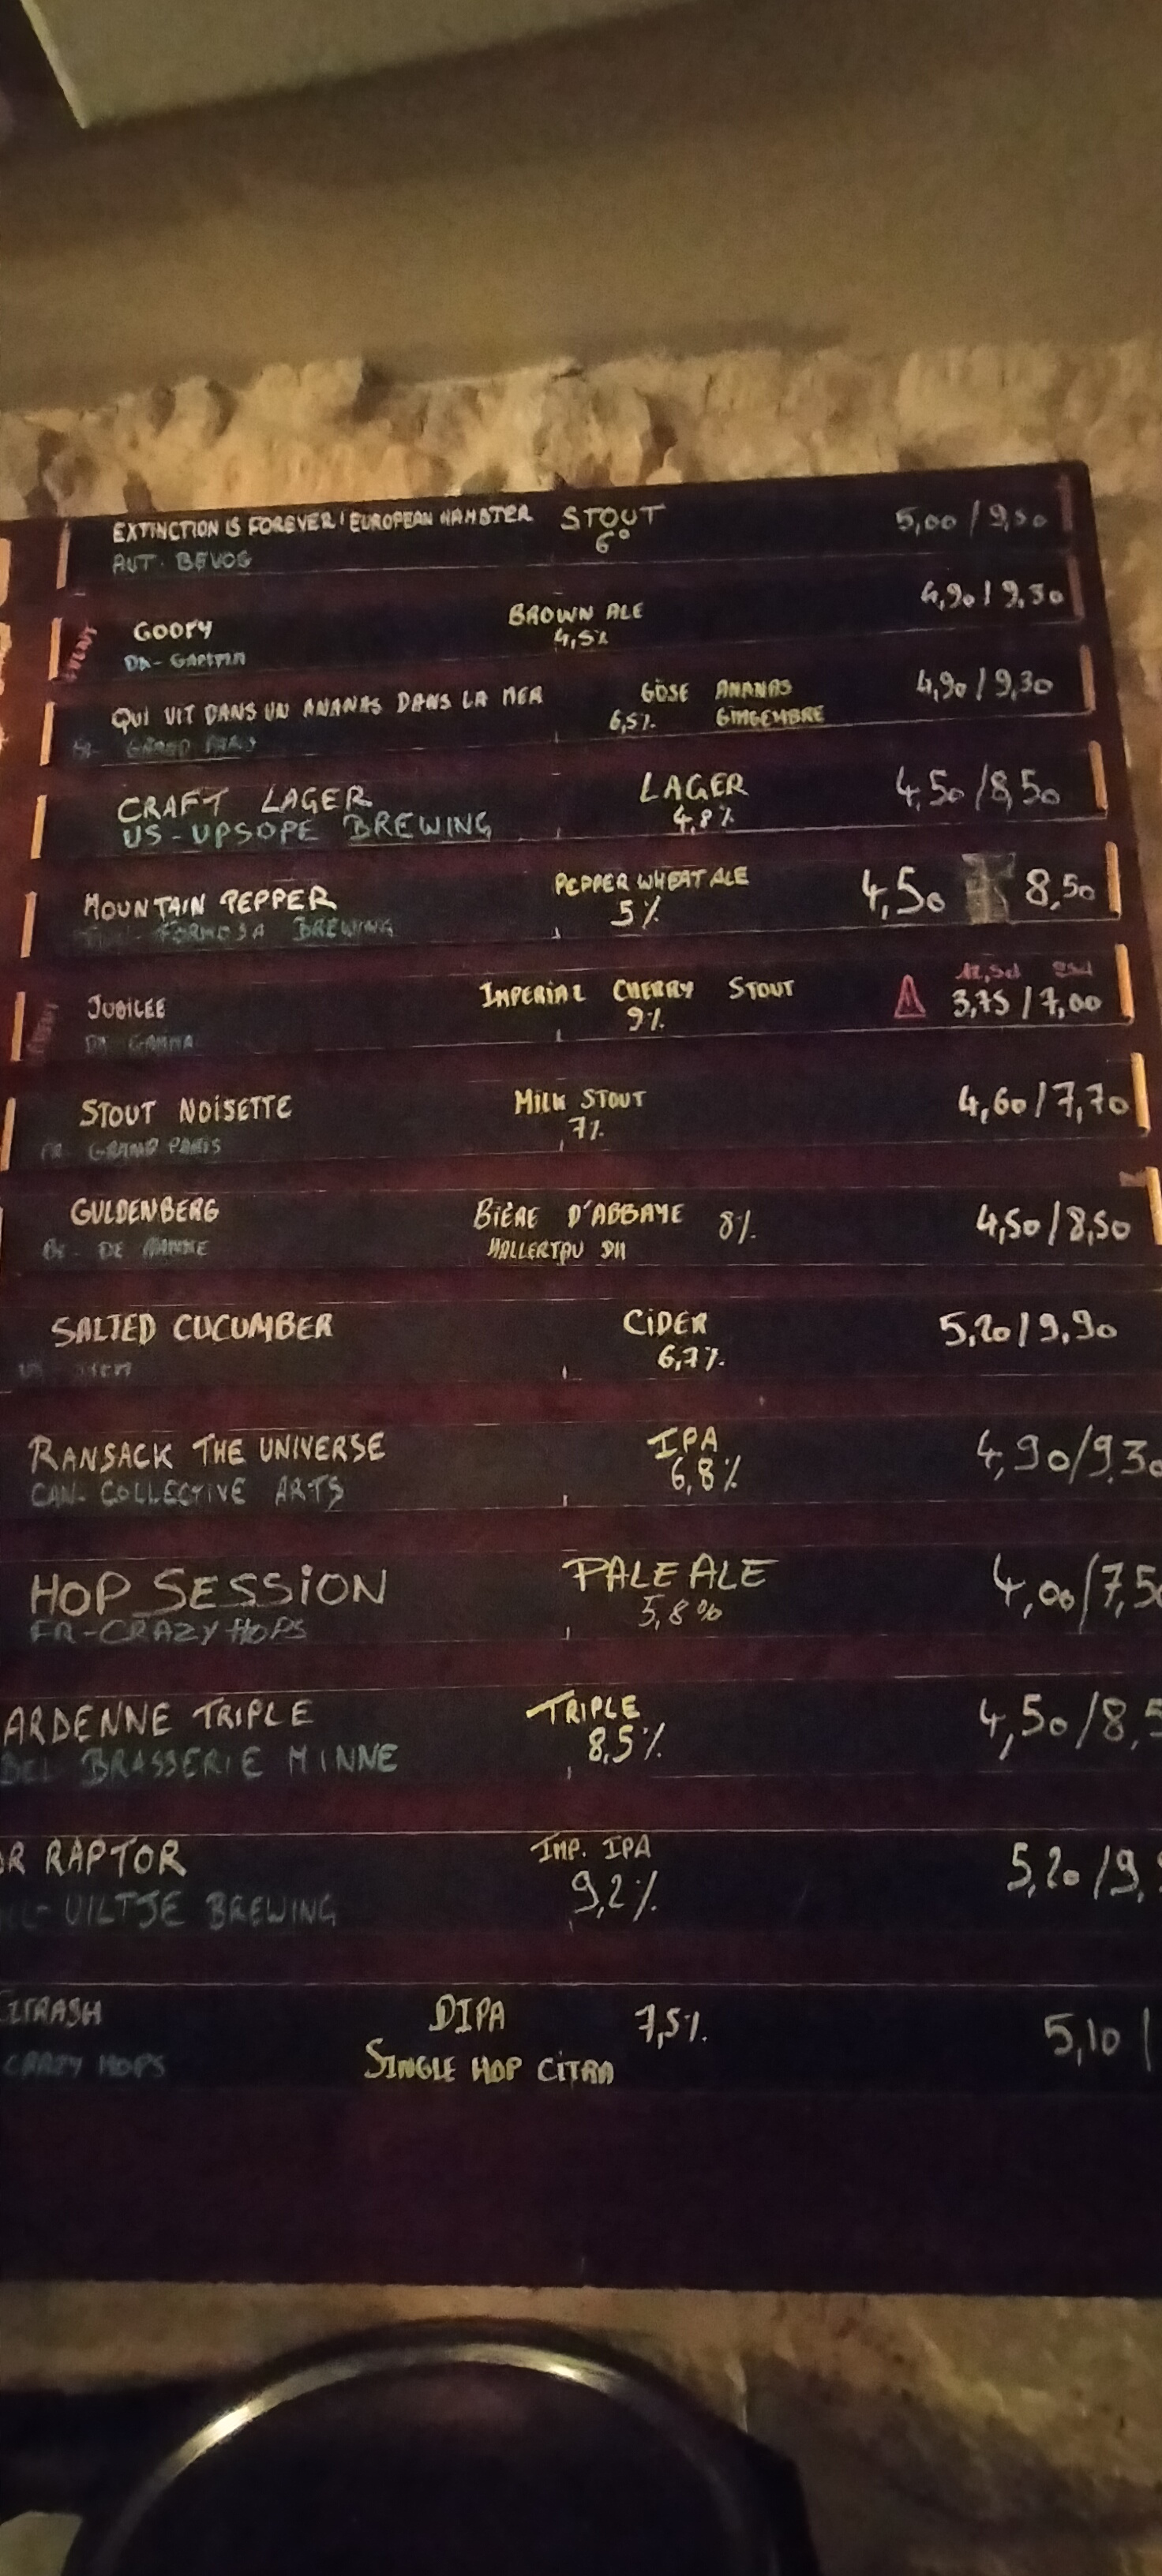 EXTINCTION IS FOREVER! EUROPEAN HAMSTER STOUT 5,00 / 9,50
6°
AUT. BEVOG
GOOFY BROWN ALE 4,90 / 9,30
4,5%
DA-
QUI VIT DANS UN ANANAS DANS LA MER GOSE ANANAS 4,90 / 9,30
6,5% GINGEMBRE
GRAND PARIS
CRAFT LAGER LAGER 4,50 / 8,50
US-UPSOPE BREWING 4,8%
MOUNTAIN PEPPER PEPPER WHEAT ALE 4,50 8,50
5%
FORMOSA BREWING
12,5cl 25cl
JUBILEE IMPERIAL CHERRY STOUT 3,75 / 7,00
9%
DA- GAMMA
STOUT NOISETTE MILK STOUT 4,60 / 7,70
7%
FR- GRAND PARIS
GULDENBERG BIÈRE D'ABBAYE 8% 4,50 / 8,50
BE- DE RANKE HALLERTAU DH
SALTED CUCUMBER CIDER 5,20 / 9,90
6,7%
RANSACK THE UNIVERSE IPA 4,90 / 9,30
6,8%
CAN- COLLECTIVE ARTS
HOP SESSION PALE ALE 4,00 / 7,50
5,8%
FR-CRAZY HOPS
ARDENNE TRIPLE TRIPLE 4,50 / 8,5
8,5%
BEL BRASSERIE MINNE
OR RAPTOR IMP. IPA 5,20 / 9,
9,2%
UILTJE BREWING
CITRASH DIPA 7,5% 5,10 /
CRAZY HOPS SINGLE HOP CITRA